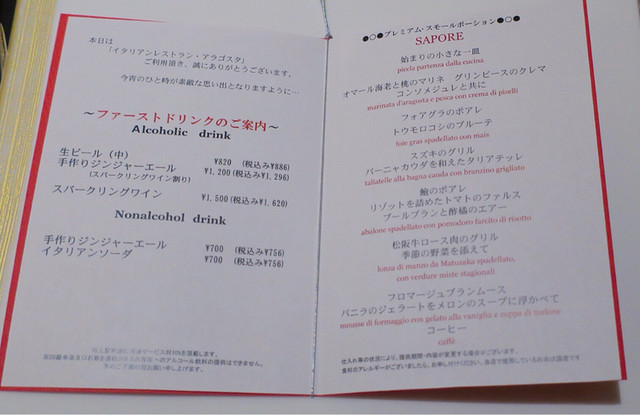 本日は
「イタリアンレストラン・アラゴスタ」
ご利用頂き、誠にありがとうございます。
今宵のひと時が素敵な思い出となりますように…
～ファーストドリンクのご案内～
Alcoholic drink
生ビール（中） ¥820 （税込み¥886）
手作りジンジャーエール ¥1,200（税込み¥1,296）
（スパークリングワイン割り）
スパークリングワイン ¥1,500（税込み¥1,620）
Nonalcohol drink
手作りジンジャーエール ¥700 （税込み¥756）
イタリアンソーダ ¥700 （税込み¥756）
●○●プレミアム・スモールポーション●○●
SAPORE
始まりの小さな一皿
piccla partenza dalla cucina
オマール海老と桃のマリネ グリンピースのクレマ
コンソメジュレと共に
marinata d'aragosta e pesca con crema di piselli
フォアグラのポアレ
トウモロコシのブルーテ
foie gras spadellato con mais
スズキのグリル
バーニャカウダを和えたタリアテッレ
taliatelle alla bagna cauda con branzino grigliato
鮑のポアレ
リゾットを詰めたトマトのファルス
ブールブランと酢橘のエアー
abalone spadellato con pomodoro farcito di risotto
松阪牛ロース肉のグリル
季節の野菜を添えて
lonza di manzo da Matuzaka spadellato,
con verdure miste stagionali
フロマージュブランムース
バニラのジェラートをメロンのスープに浮かべて
mousse di formaggio con gelato alla vaniglia e zuppa di melone
コーヒー
caffè
仕入れ等の状況により、提供期間・内容が変更する場合がございます。
食材のアレルギーがございましたら、お申し付けください。当店で使用しているお米は国産です